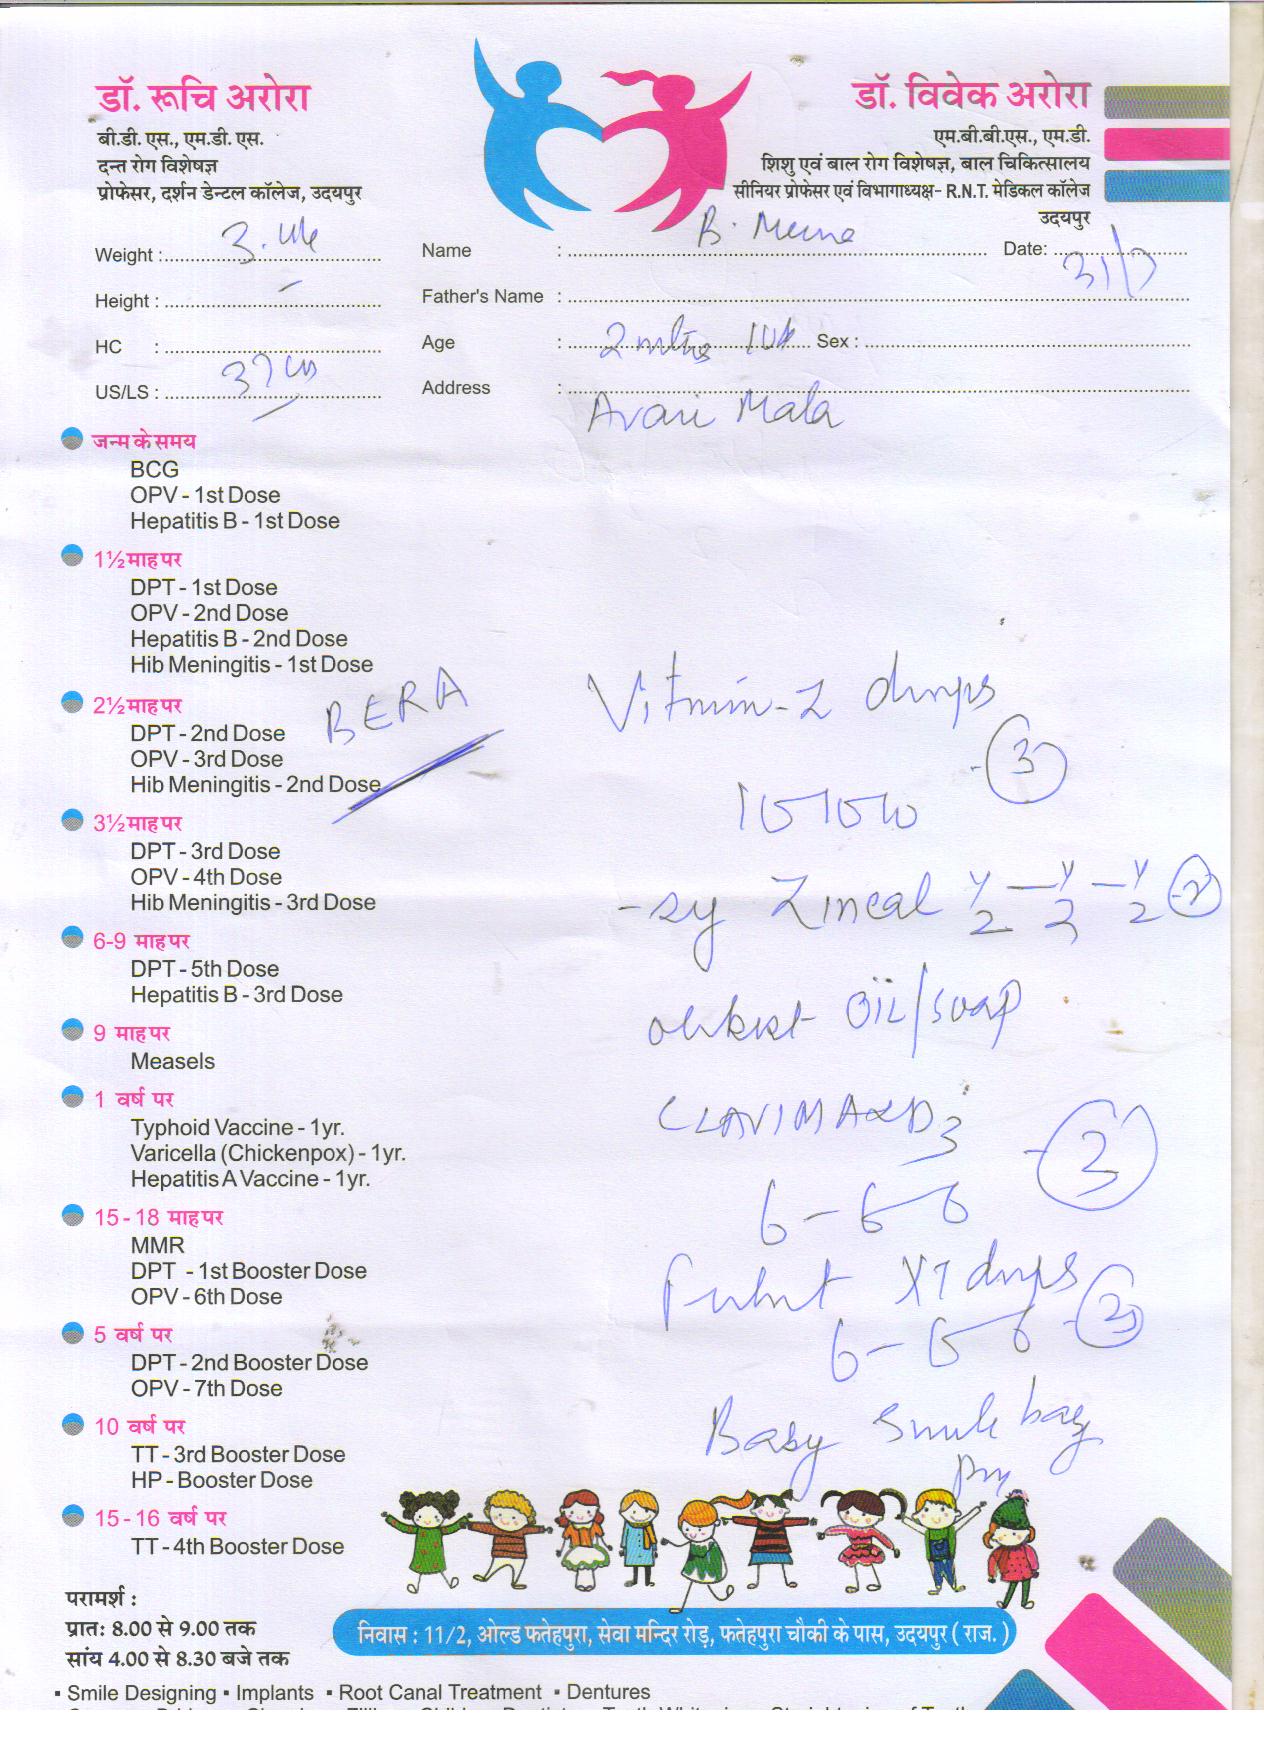 डॉ. रूचि अरोरा
बी.डी. एस., एम.डी. एस.
दन्त रोग विशेषज्ञ
प्रोफेसर, दर्शन डेन्टल कॉलेज, उदयपुर
डॉ. विवेक अरोरा
एम.बी.बी.एस., एम.डी.
शिशु एवं बाल रोग विशेषज्ञ, बाल चिकित्सालय
सीनियर प्रोफेसर एवं विभागाध्यक्ष- R.N.T. मेडिकल कॉलेज
उदयपुर
Weight : 3. Name : B. Date: 31/7
Height : Father's Name :
HC : Age : 2 mths Sex :
US/LS : 37 cm Address : Avari Mala
जन्म के समय
BCG
OPV - 1st Dose
Hepatitis B - 1st Dose
1½ माह पर
DPT - 1st Dose
OPV - 2nd Dose
Hepatitis B - 2nd Dose
Hib Meningitis - 1st Dose
2½ माह पर
DPT - 2nd Dose
OPV - 3rd Dose
Hib Meningitis - 2nd Dose
BERA
3½ माह पर
DPT - 3rd Dose
OPV - 4th Dose
Hib Meningitis - 3rd Dose
6-9 माह पर
DPT - 5th Dose
Hepatitis B - 3rd Dose
9 माह पर
Measels
1 वर्ष पर
Typhoid Vaccine - 1yr.
Varicella (Chickenpox) - 1yr.
Hepatitis A Vaccine - 1yr.
15 - 18 माह पर
MMR
DPT - 1st Booster Dose
OPV - 6th Dose
5 वर्ष पर
DPT - 2nd Booster Dose
OPV - 7th Dose
10 वर्ष पर
TT - 3rd Booster Dose
HP - Booster Dose
15 - 16 वर्ष पर
TT - 4th Booster Dose
drops
- 3
- sy Zincal ½ — ½ — ½
OIL/soap
D3
6 - 6 - 6
XT drops
6 - 6 - 6
Baby Smile bag
परामर्श :
प्रातः 8.00 से 9.00 तक
सांय 4.00 से 8.30 बजे तक
निवास : 11/2, ओल्ड फतेहपुरा, सेवा मन्दिर रोड़, फतेहपुरा चौकी के पास, उदयपुर ( राज. )
▪ Smile Designing ▪ Implants ▪ Root Canal Treatment ▪ Dentures